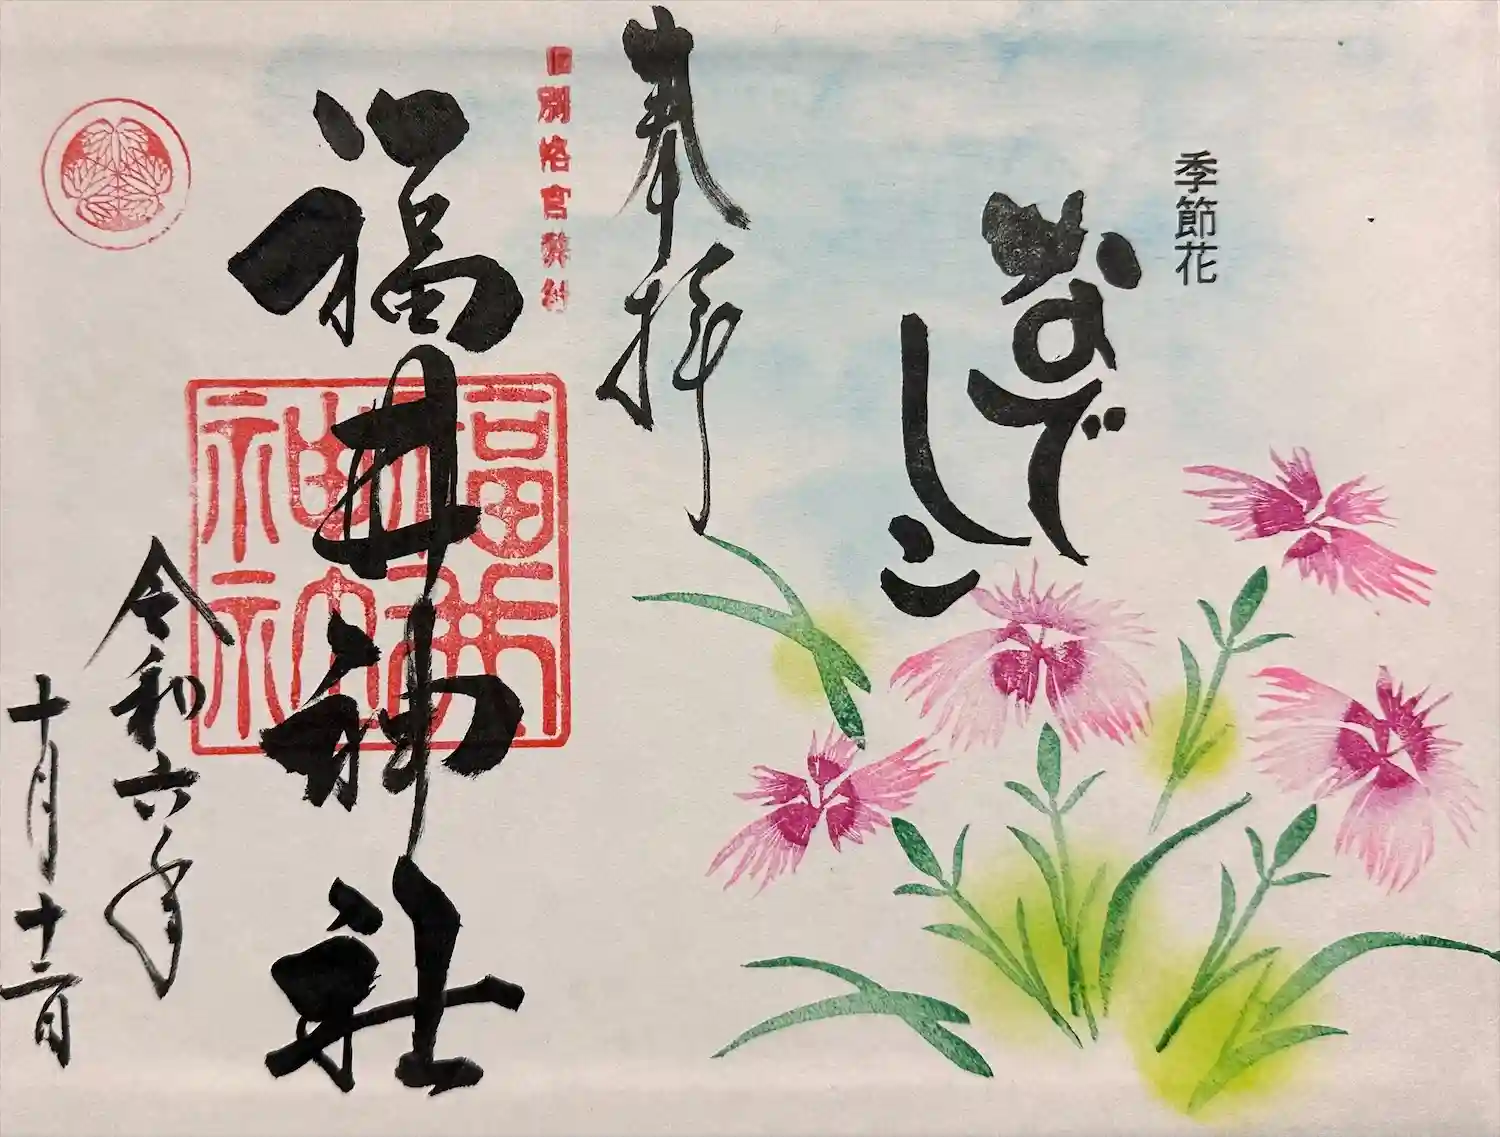 季節花
なでしこ
奉拝
旧別格官幣社
福井神社
福井神社
令和六年
十月十二日